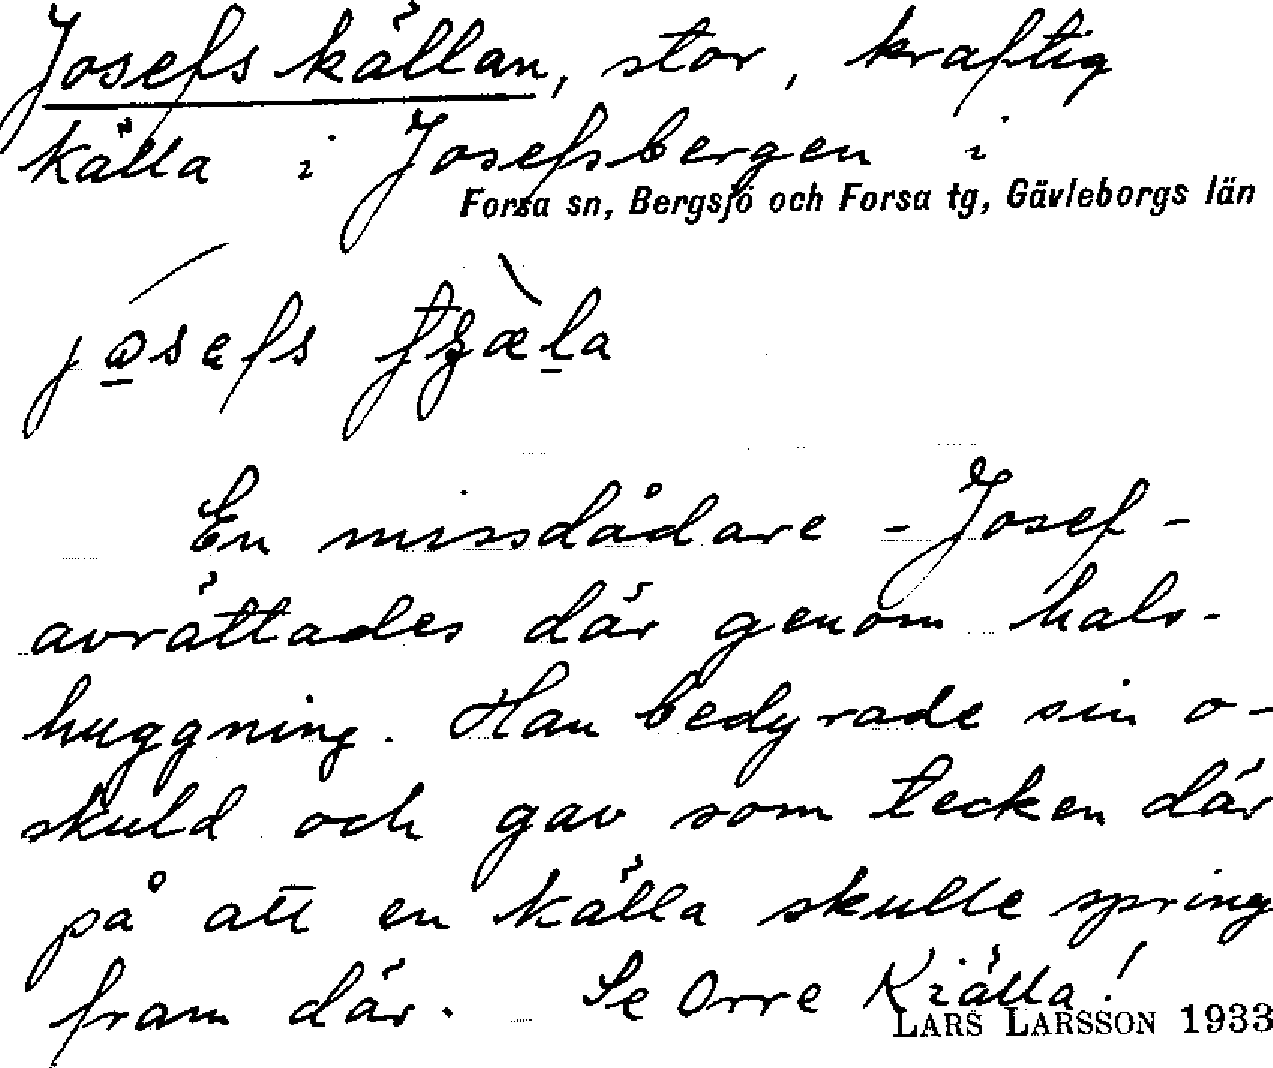 Josefs källan, stor, kraftig
källa i Josefsbergen i
Forsa sn, Bergsjö och Forsa tg, Gävleborgs län
En missdådare - Josef -
avrättades där genom hals-
huggning. Han bedyrade sin o-
skuld och gav som tecken där
på att en källa skulle spring
fram där. Se Orre Kiälla!
LARS LARSSON 1933